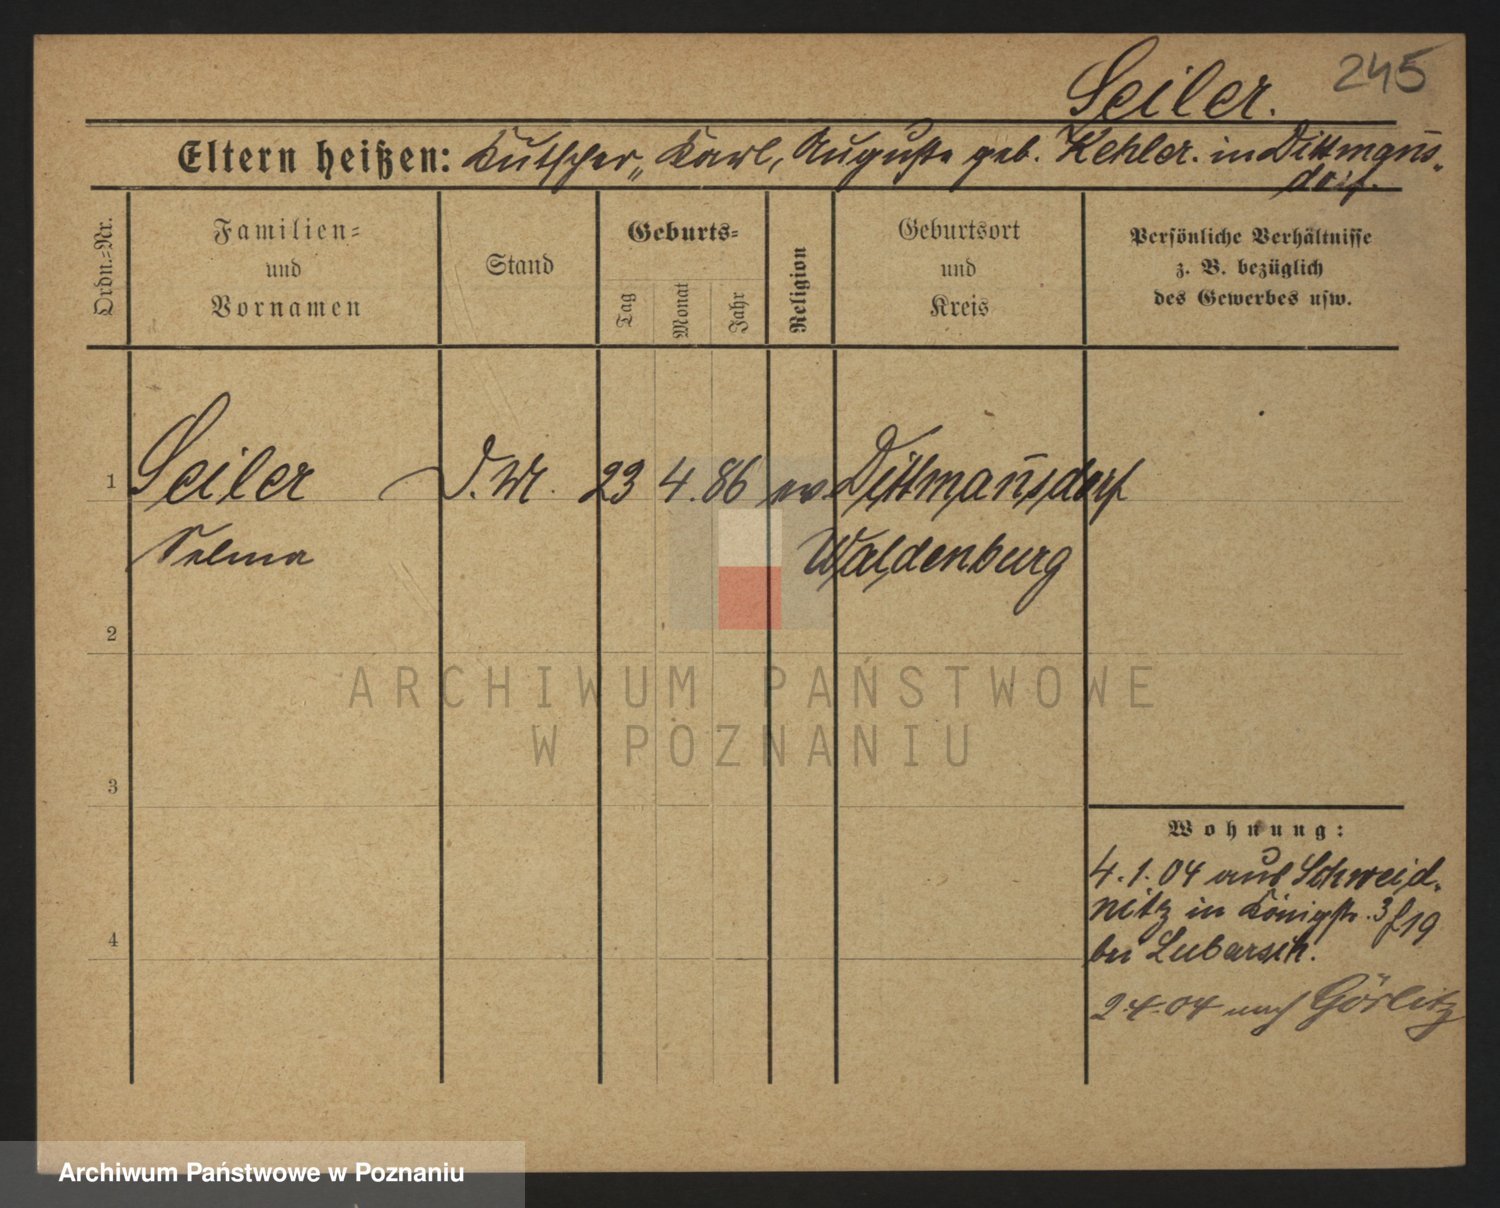 245
Seiler.
Eltern heißen: Kutscher, Karl, Auguste geb. Kehler. in Dittmanns-
dorf.
Ordn.-Nr.
Familien-
und
Vornamen
Stand
Geburts-
Tag
Monat
Jahr
Religion
Geburtsort
und
Kreis
Persönliche Verhältnisse
z. B. bezüglich
des Gewerbes usw.
1 Seiler D.M. 23 4. 86 ev Dittmannsdorf
Selma Waldenburg
2
3
4
ARCHIWUM PAŃSTWOWE
W POZNANIU
Wohnung:
4.1.04 aus Schweid-
nitz in Königstr. 3 f 19
bei Lubarsch.
2.4.04 nach Görlitz
Archiwum Państwowe w Poznaniu